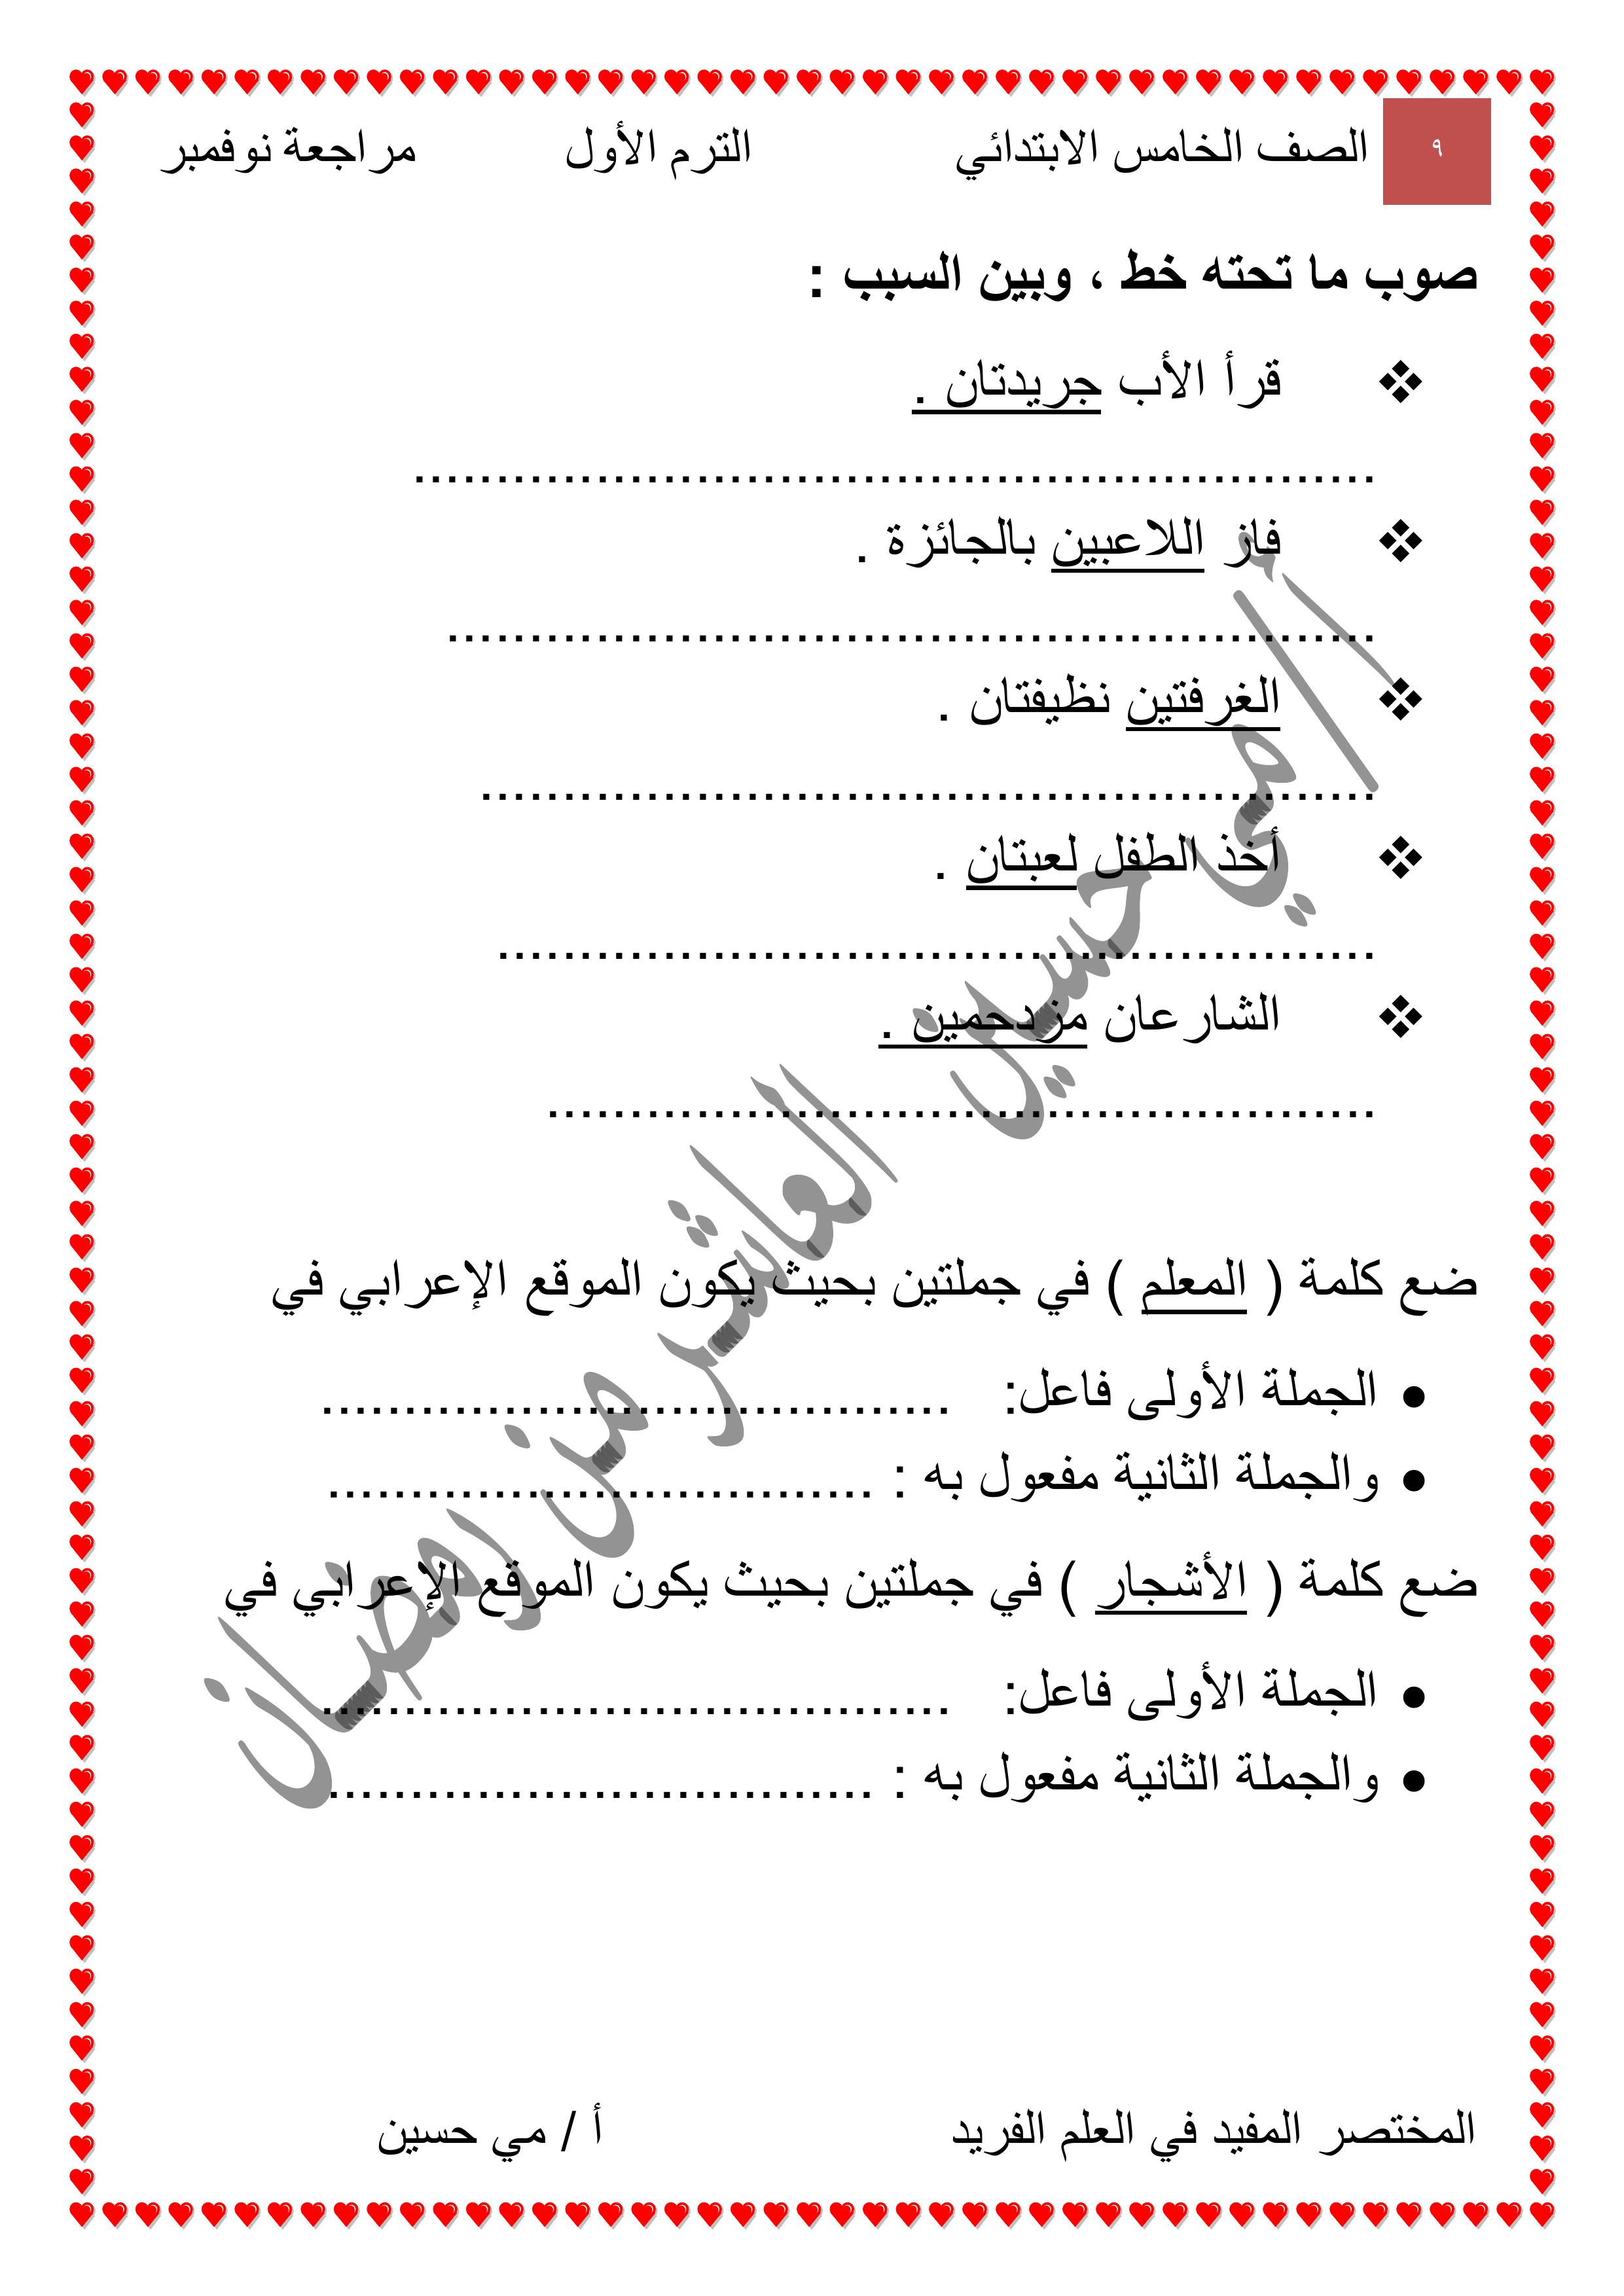 ٩
الصف الخامس الابتدائي الترم الأول مراجعة نوفمبر
صوب ما تحته خط ، وبين السبب :
❖ قرأ الأب جريدتان .
..........................................................
❖ فاز اللاعبين بالجائزة .
........................................................
❖ الغرفتين نظيفتان .
......................................................
❖ أخذ الطفل لعبتان .
.....................................................
❖ الشارعان مزدحمين .
..................................................
ضع كلمة ( المعلم ) في جملتين بحيث يكون الموقع الإعرابي في
• الجملة الأولى فاعل: ......................................
• والجملة الثانية مفعول به : .................................
ضع كلمة ( الأشجار ) في جملتين بحيث يكون الموقع الإعرابي في
• الجملة الأولى فاعل: ......................................
• والجملة الثانية مفعول به : .................................
أ/مي حسين العاشر من رمضان
المختصر المفيد في العلم الفريد أ / مي حسين